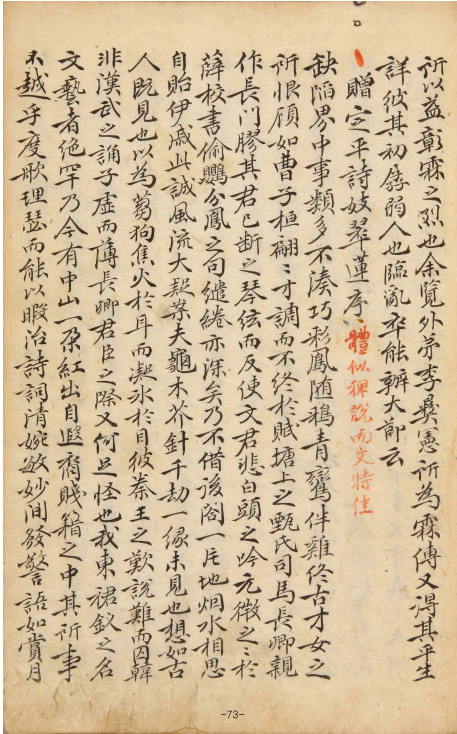 所以益彰霖之烈也余覽外弟李彛憲所為霖傳又得其平生
詳彼其初孱弱人也臨亂乃能辦大節云
贈定平詩妓翠蓮序 體似稗說而文特佳
缺陷界中事類多不湊巧彩鳳随鴉青鸞伴雞终古才女之
所恨顧如曹子桓翩〻才調而不終於賦塘上之甄氏司馬長卿親
作長門膠其君已斷之琴絃而反使文君悲白頭之吟元微之〻於
薛校書偷鸚分鳳之句繾綣亦深矣乃不借後谷一片地烟水相思
自貽伊戚此誠風流大案夫龜木芥針千劫一缘未見也想如古
人既見也以為蒭狗焦火於耳而凝氷於目彼秦王之歎說難而囚韓
非漢武之誦子虛而薄長卿君臣之際又何足怪也我東裙釵之名
文藝者絶罕乃今有中山一朶紅出自遐裔賤籍之中其所事
不越乎度歌理瑟而能以暇治詩詞清婉敏妙間發警語如賞月
-73-